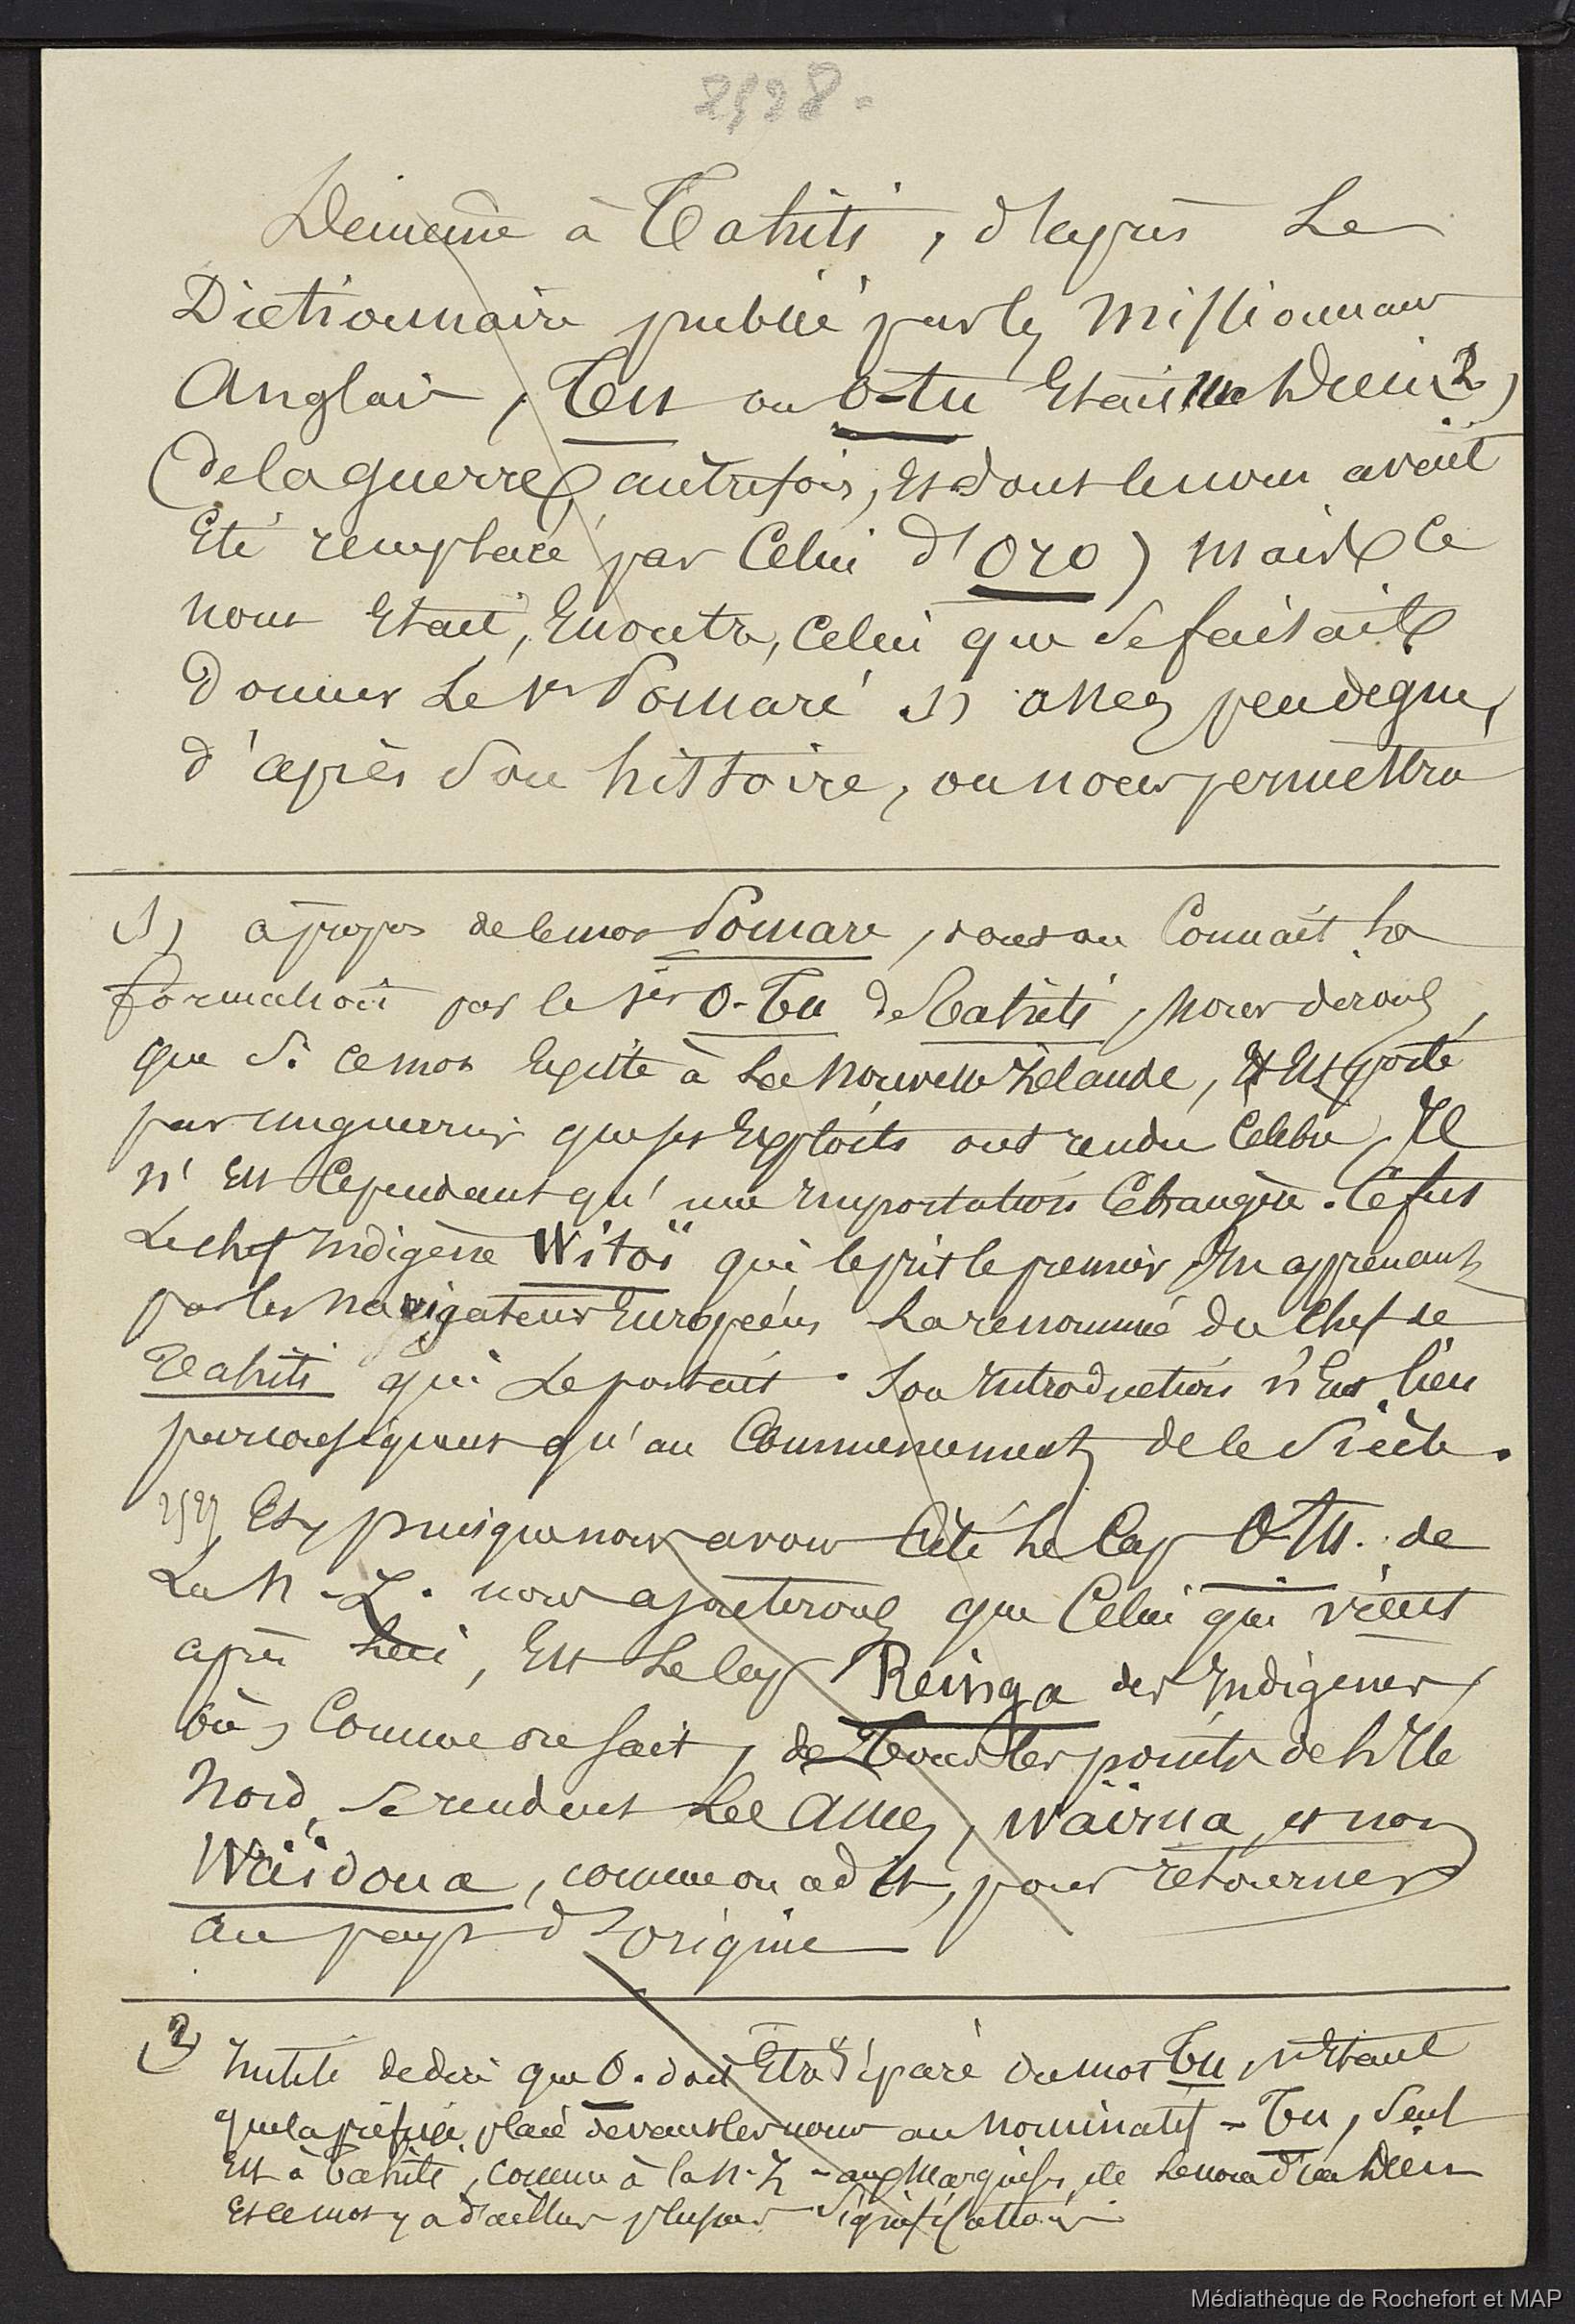 2528.
De même à Tahiti, d'après Le
Dictionnaire publié par les Missionnaires
Anglais, Tu ou O-tu Etait un Dieu (2)
(de la guerre) autrefois, Et dont le nom avait
Eté remplacé par Celui d'Oro) mais ce
nom Etait, En outre, Celui que Se faisait
Donner Le 1er Pomaré (1) assez peu digne,
d'après Son histoire, on nous permettra
(1) à propos de ce mot Pomare, dont on Connait La
formation par le 1er O-Tu de Tahiti, nous dirons,
que Si ce mot Existe à La Nouvelle Zélande, Et Est porté
par un guerrier que ses Exploits ont rendu Célèbre, Il
n'Est Cependant qu'une Importation Etrangère. Ce fut
Le chef Indigène Witoï qui le prit le premier En apprenant
par les navigateurs Européens La renommée du Chef de
Tahiti qui Le portait. Son Introduction n'Eut lieu
par conséquent qu'au Commencement de ce Siècle.
Et, puisque nous avons Cité Le Cap O-Tu. de
La N-Z. nous ajouterons que Celui qui vient
après Lui, Est Le Cap Reinga des Indigènes,
où, Comme on sait, de Tous les points de L'Ile
Nord, Se rendent Les Ames, Waïrua, et non
Waïdoua, comme on a dit, pour retourner
au pays d'Origine
(2) Inutile de dire que O. doit Etre Séparé du mot Tu, n'Etant
que la préfixe placé devant les noms au nominatif - Tu, Seul
Est à Tahiti, comme à la N-Z - aux Marquises, etc Le nom d'un Dieu
Et ce mot y a d'ailleurs plusieurs Significations